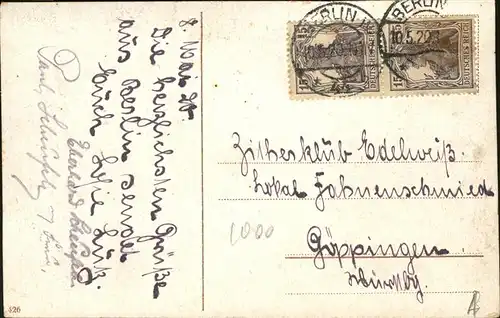 8. Mai 20.
Die herzlichsten Grüße
aus Berlin sendet
Euch
BERLIN
10.5.20
BERLIN
15
DEUTSCHES REICH
15
DEUTSCHES REICH
Zitherklub Edelweiß.
Lokal Fahnenschmied
Göppingen
Württbg.
1000
A
426